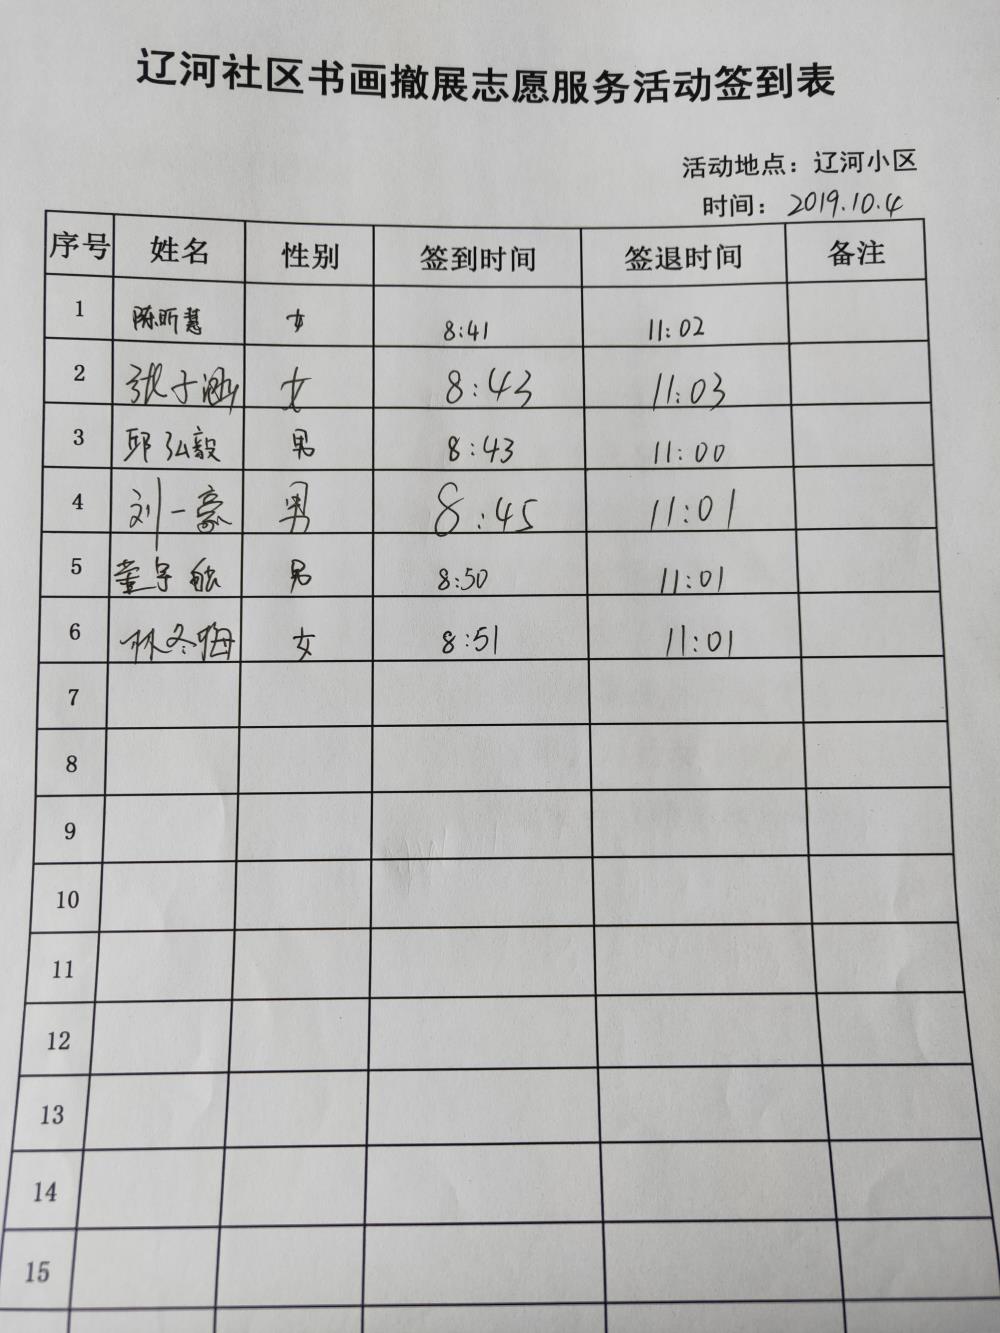 辽河社区书画撤展志愿服务活动签到表
活动地点：辽河小区
时间：2019.10.4
序号 姓名 性别 签到时间 签退时间 备注
1 陈昕慧 女 8:41 11:02
2 张子涵 女 8:43 11:03
3 邱弘毅 男 8:43 11:00
4 刘一豪 男 8:45 11:01
5 董宇航 男 8:50 11:01
6 林冬梅 女 8:51 11:01
7
8
9
10
11
12
13
14
15